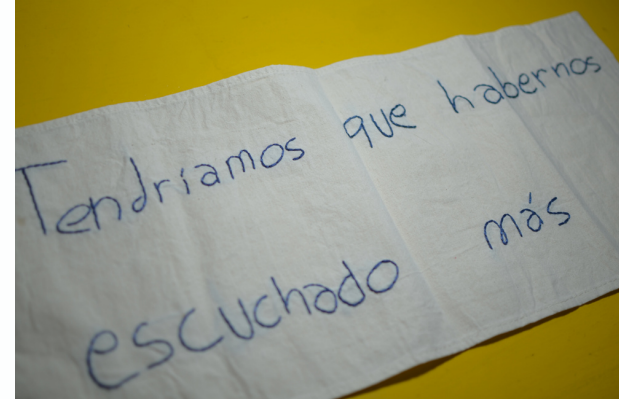 Tendríamos que habernos
escuchado más